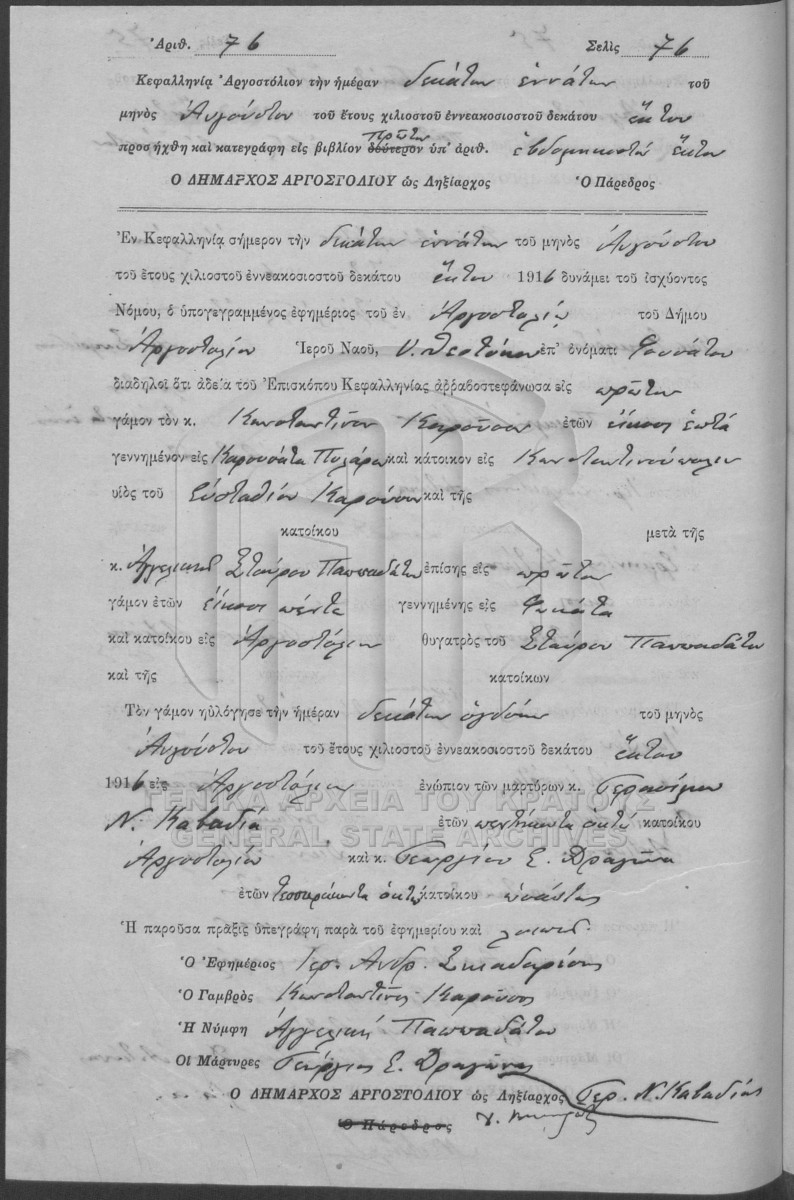 Ἀριθ. 76 Σελὶς 76
Κεφαλληνίᾳ Ἀργοστόλιον τὴν ἡμέραν δεκάτην ἐννάτην τοῦ
μηνὸς Αὐγούστου τοῦ ἔτους χιλιοστοῦ ἐννεακοσιοστοῦ δεκάτου ἕκτου
πρῶτον
προσήχθη καὶ κατεγράφη εἰς βιβλίον δεύτερον ὑπ' ἀριθ. ἑβδομηκοστὸν ἕκτον
Ο ΔΗΜΑΡΧΟΣ ΑΡΓΟΣΤΟΛΙΟΥ ὡς Ληξίαρχος Ὁ Πάρεδρος
Ἐν Κεφαλληνίᾳ σήμερον τὴν δεκάτην ἐννάτην τοῦ μηνὸς Αὐγούστου
τοῦ ἔτους χιλιοστοῦ ἐννεακοσιοστοῦ δεκάτου ἕκτου 1916 δυνάμει τοῦ ἰσχύοντος
Νόμου, ὁ ὑπογεγραμμένος ἐφημέριος τοῦ ἐν Ἀργοστολίῳ τοῦ Δήμου
Ἀργοστολίου Ἱεροῦ Ναοῦ, Υ. Θεοτόκου ἐπ' ὀνόματι
διαδηλοῖ ὅτι ἀδείᾳ τοῦ Ἐπισκόπου Κεφαλληνίας ἀρραβοστεφάνωσα εἰς πρῶτον
γάμον τὸν κ. Κωνσταντῖνον Καροῦσον ἐτῶν εἴκοσι ἑπτά
γεννημένον εἰς Καρουσάτα Πυλάρου καὶ κάτοικον εἰς Κωνσταντινούπολιν
υἱὸς τοῦ Εὐσταθίου Καρούσου καὶ τῆς
κατοίκου μετὰ τῆς
κ. Ἀγγελικῆς Σταύρου Παππαδάτου ἐπίσης εἰς πρῶτον
γάμον ἐτῶν εἴκοσι πέντε γεννημένης εἰς Φωκάτα
καὶ κατοίκου εἰς Ἀργοστόλιον θυγατρὸς τοῦ Σταύρου Παππαδάτου
καὶ τῆς κατοίκων
Τὸν γάμον ηὐλόγησε τὴν ἡμέραν δεκάτην ὀγδόην τοῦ μηνὸς
Αὐγούστου τοῦ ἔτους χιλιοστοῦ ἐννεακοσιοστοῦ δεκάτου ἕκτου
1916 εἰς Ἀργοστόλιον ἐνώπιον τῶν μαρτύρων κ. Γερασίμου
ΓΕΝΙΚΑ ΑΡΧΕΙΑ ΤΟΥ ΚΡΑΤΟΥΣ
Ν. Καβαδία ἐτῶν πεντήκοντα ὀκτώ κατοίκου
GENERAL STATE ARCHIVES
Ἀργοστολίου καὶ κ. Γεωργίου Σ. Δραγώνα
ἐτῶν τεσσαράκοντα ὀκτώ κατοίκου ὡσαύτως
Ἡ παροῦσα πρᾶξις ὑπεγράφη παρὰ τοῦ ἐφημερίου καὶ λοιπῶν
Ὁ Ἐφημέριος Ἱερ. Ἀνδρ. Σκιαδαρέσης
Ὁ Γαμβρὸς Κωνσταντῖνος Καροῦσος
Ἡ Νύμφη Ἀγγελικὴ Παππαδάτου
Οἱ Μάρτυρες Γεώργιος Σ. Δραγώνας
Ο ΔΗΜΑΡΧΟΣ ΑΡΓΟΣΤΟΛΙΟΥ ὡς Ληξίαρχος Γερ. Ν. Καβαδίας
Ὁ Πάρεδρος